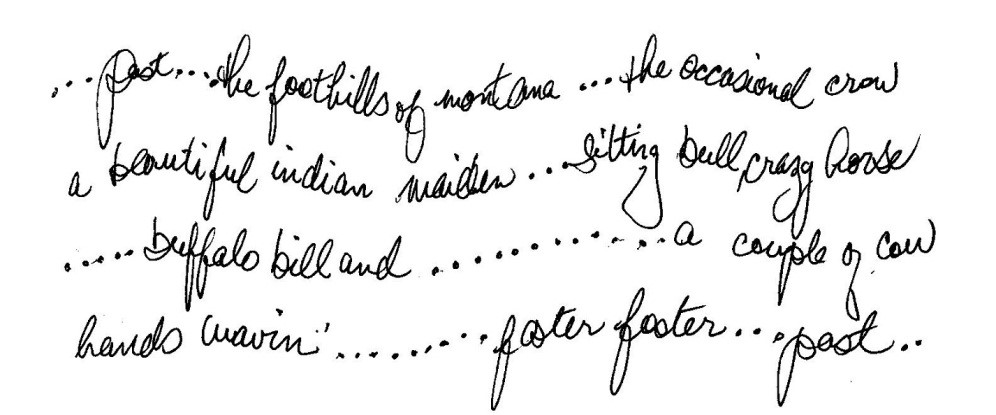 ...past....the foothills of montana ...the occasional crow
a beautiful indian maiden ...sitting bull, crazy horse
.....buffalo bill and ............a couple of cow
hands wavin' ..........faster faster ...past..